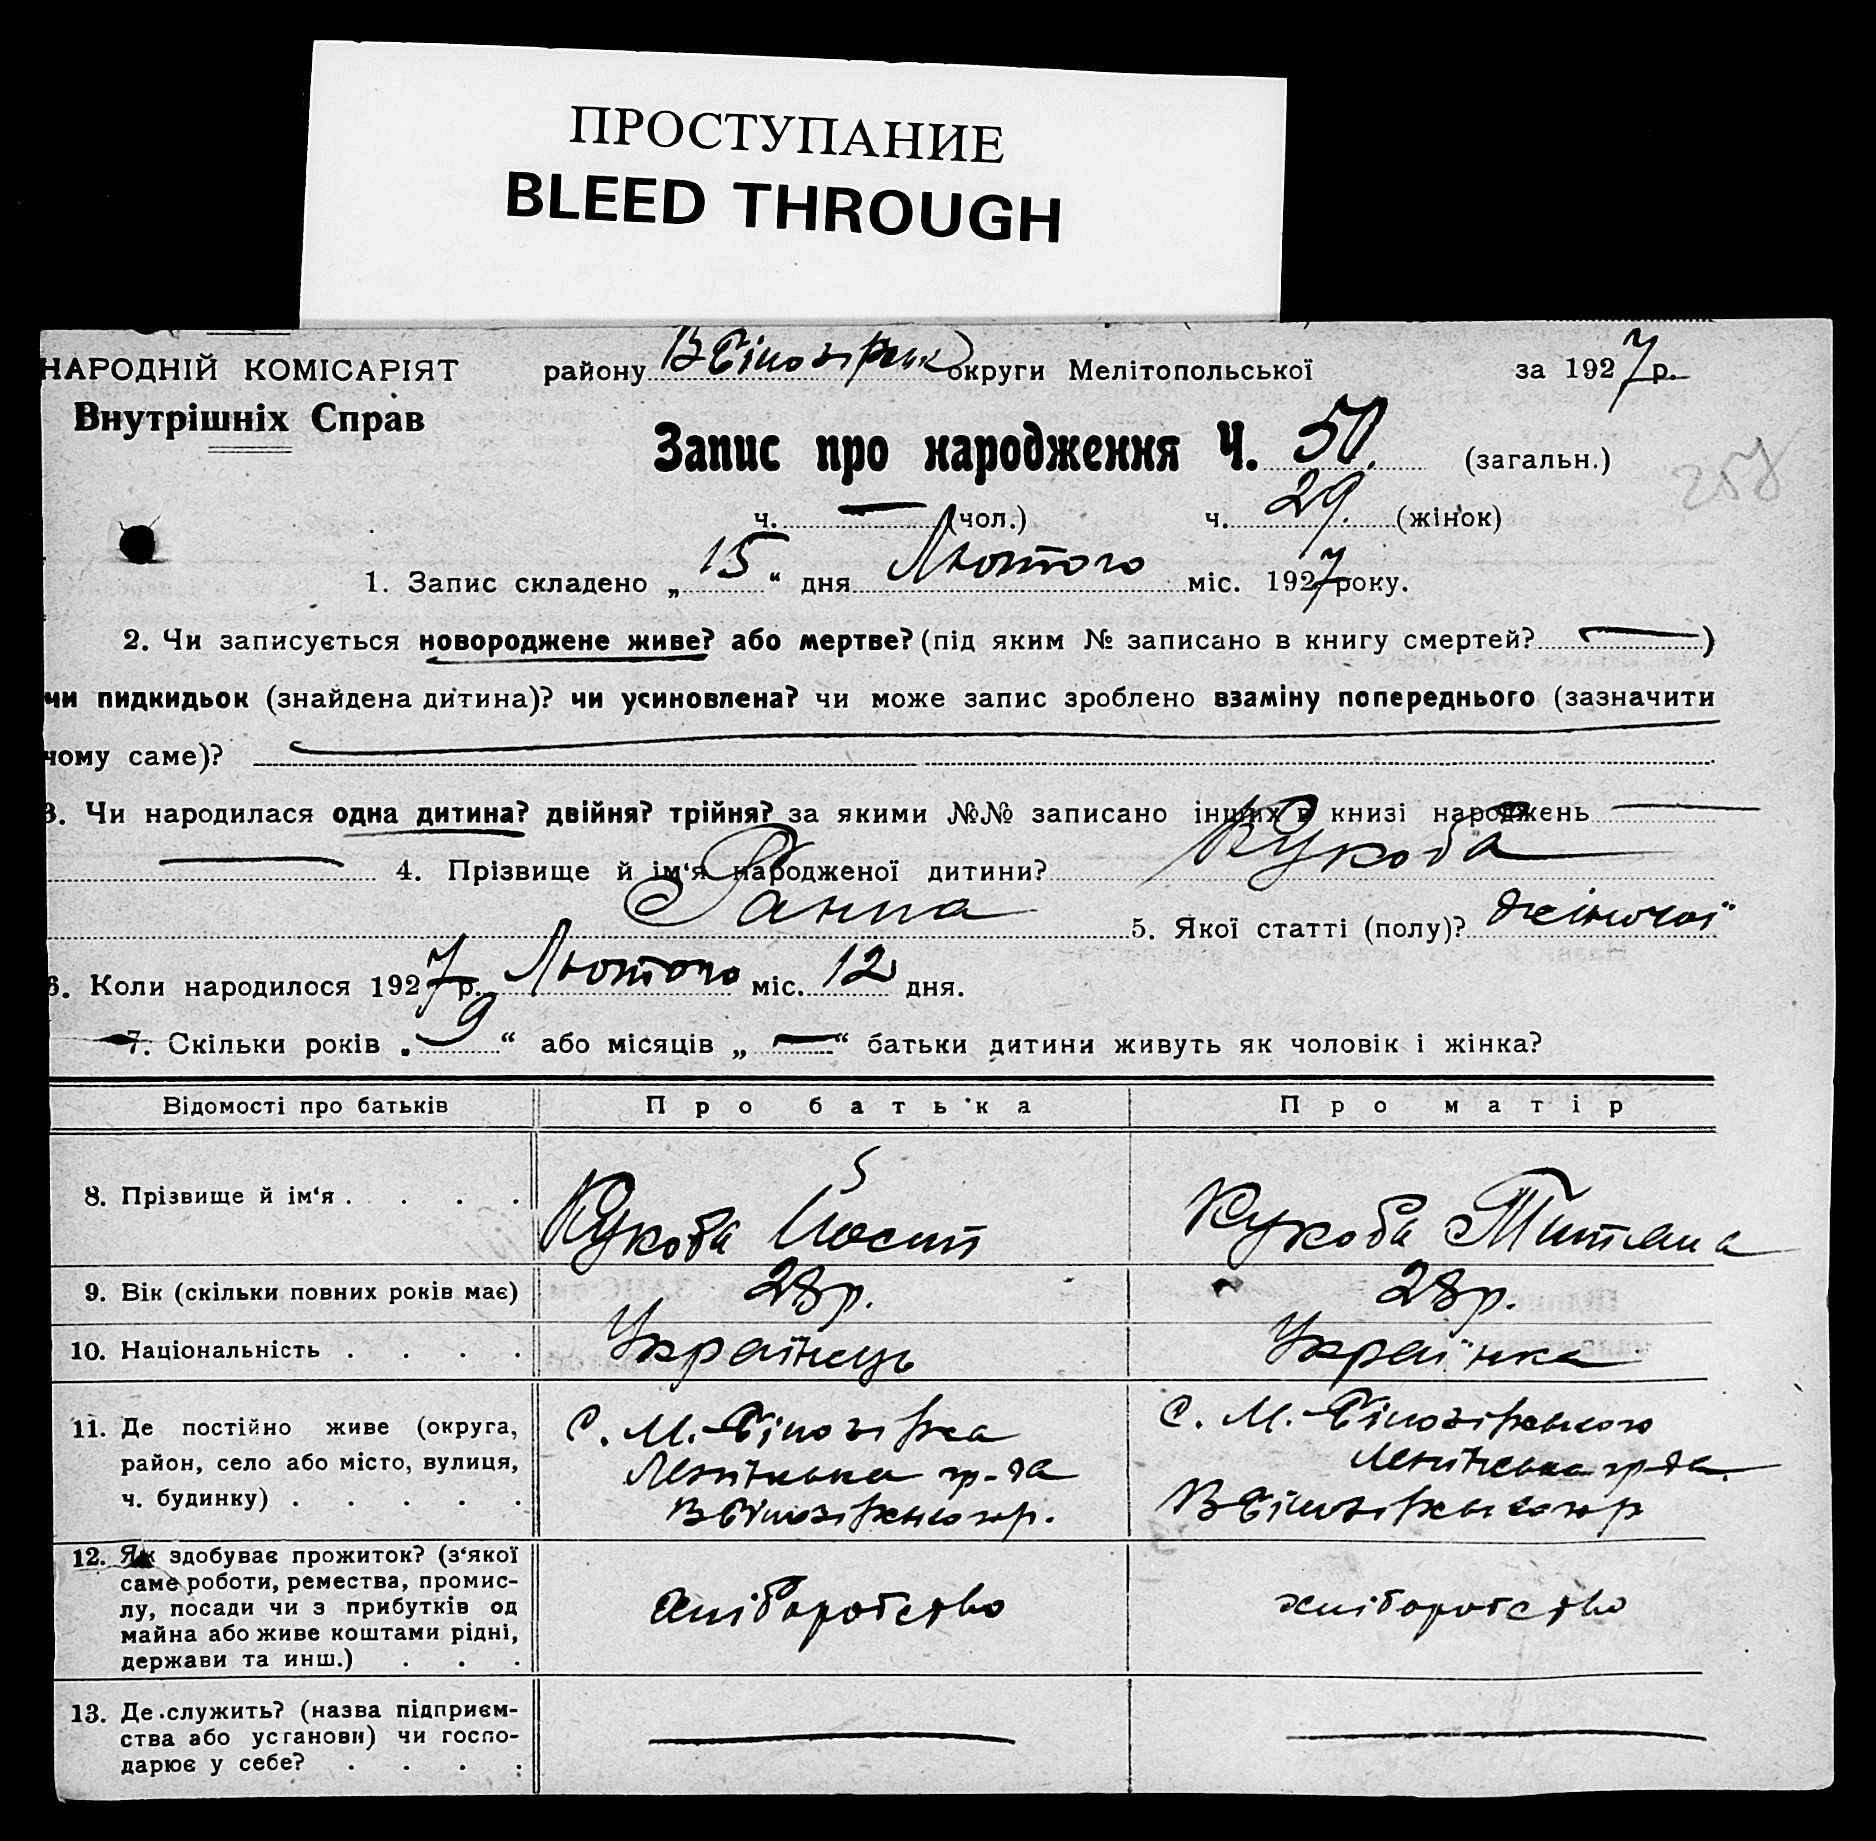 ПРОСТУПАНИЕ
BLEED THROUGH
НАРОДНІЙ КОМІСАРІЯТ
Внутрішніх Справ
району В Білозірськ округи Мелітопольської за 1927 р.
Запис про народження Ч. 50. (загальн.)
258
ч. — (чол.) ч. 29. (жінок)
1. Запис складено „15“ дня Лютого міс. 1927 року.
2. Чи записується новороджене живе? або мертве? (під яким № записано в книгу смертей? — )
чи пидкидьок (знайдена дитина)? чи усиновлена? чи може запис зроблено взаміну попереднього (зазначити
чому саме)? —
3. Чи народилася одна дитина? двійня? трійня? за якими №№ записано інших в книзі народжень —
— 4. Прізвище й ім‘я народженої дитини? Кукоба
Ганна 5. Якої статті (полу)? жіночої
6. Коли народилося 1927 р. Лютого міс. 12 дня.
7. Скільки років „9“ або місяців „—“ батьки дитини живуть як чоловік і жінка?
Відомості про батьків Про батька Про матір
8. Прізвище й ім‘я . . . . Кукоба Йосип Кукоба Титяна
9. Вік (скільки повних років має) 28 р. 28 р.
10. Національність . . . . Українець Українка
11. Де постійно живе (округа, С. М.-Білозірка С. М.-Білозірського
район, село або місто, вулиця, Ленінська гр-да Ленінська гр-да.
ч. будинку) . . . . . В Білозірського р. В Білозірського р
12. Як здобуває прожиток? (з‘якої
саме роботи, ремества, промис-
лу, посади чи з прибутків од хліборобство хліборобство
майна або живе коштами рідні,
держави та инш.) . . .
13. Де служить? (назва підприєм-
ства або установи) чи госпо- — —
дарює у себе? . . . .